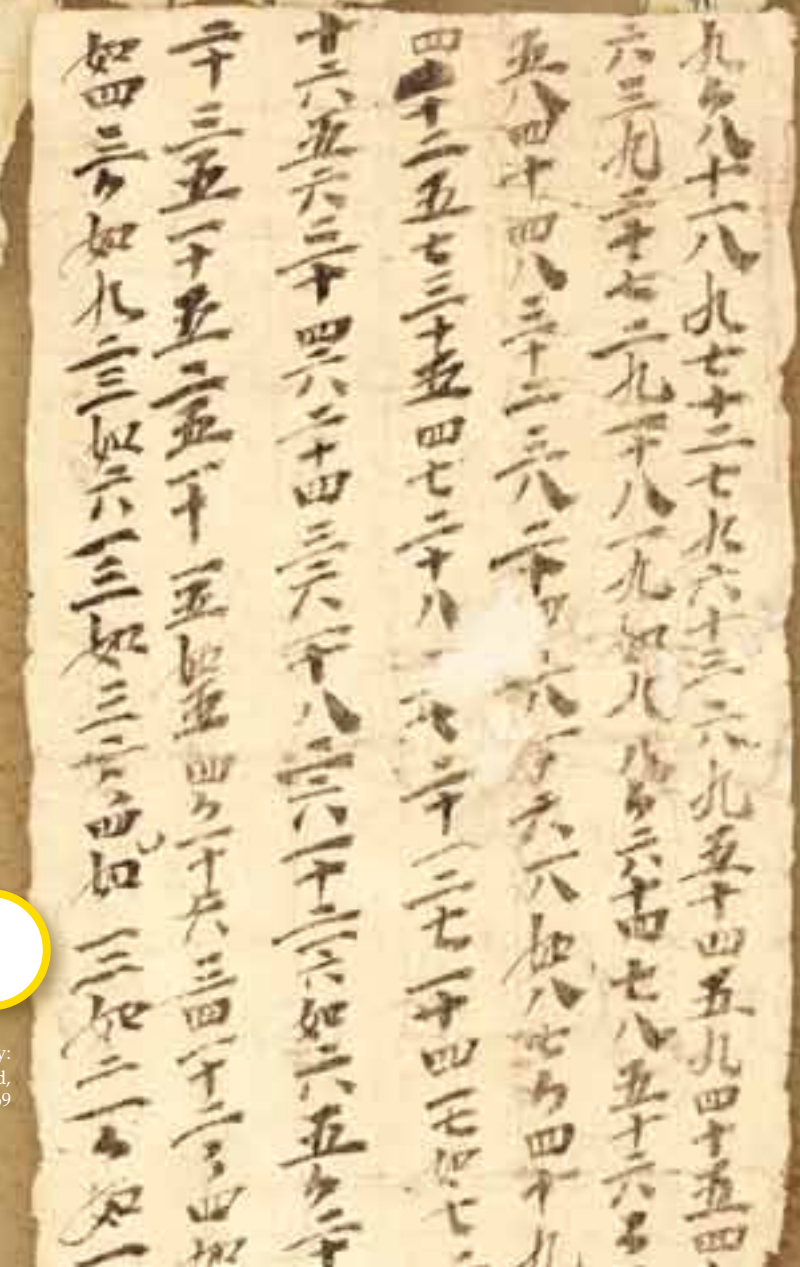 九々八十一八九七十二七九六十三六九五十四五九四十五四
六三九二十七二九一十八一九如九八々六十四七八五十六
五八四十四八三十二三八二十四二八一十六一八如八七々四十九
四十二五七三十五四七二十八三七二十一二七一十四一七如七
六五六三十四六二十四三六一十八二六一十二一六如六五々二十
二十三五一十五二五一十一五如五四々一十六三四一十二二四如
如四三々如九二三如六一三如三二々四如一二如二一々如一
y:
d,